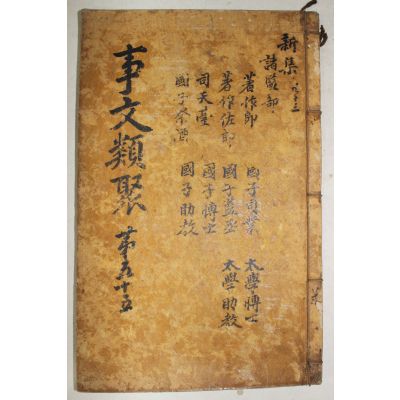 新集
諸監部
著作郎 國子司業 太學博士
著作佐郎 國子監丞 太學助教
司天臺 國子博士
國子祭酒 國子助教
事文類聚 第五十五